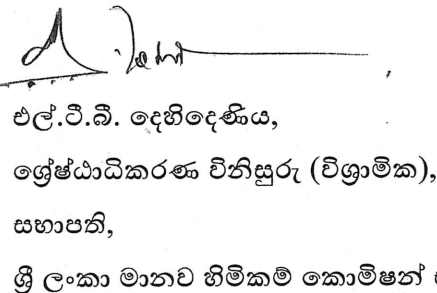 එල්.ටී.බී. දෙහිදෙණිය,
ශ්‍රේෂ්ඨාධිකරණ විනිසුරු (විශ්‍රාමික),
සභාපති,
ශ්‍රී ලංකා මානව හිමිකම් කොමිෂන්